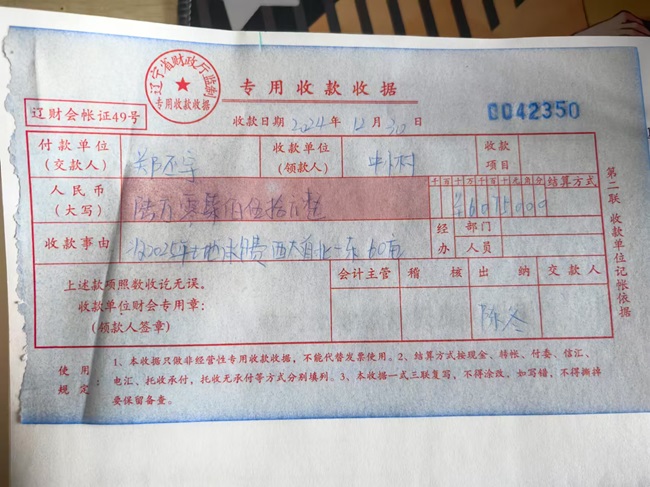 辽宁省财政厅监制
专用收款收据
专用收款收据
辽财会帐证49号
收款日期 2024年 12月 30日
0042350
付款单位
(交款人)
收款单位
(领款人)
收款
项目
人民币
(大写)
陆万零柒佰伍拾元整
千百十万千百十元角分
¥6075000
结算方式
收款事由
收2025年土地承包费 60亩
经办
部门
人员
上述款项照数收讫无误。
收款单位财会专用章:
(领款人签章)
会计主管
稽核
出纳
交款人
陈冬
第二联 收款单位记帐依据
使用规定:
1、本收据只做非经营性专用收款收据,不能代替发票使用。2、结算方式按现金、转帐、付委、信汇、
电汇、托收承付,托收无承付等方式分别填列。3、本收据一式三联复写,不得涂改,如写错,不得撕掉
要保留备查。